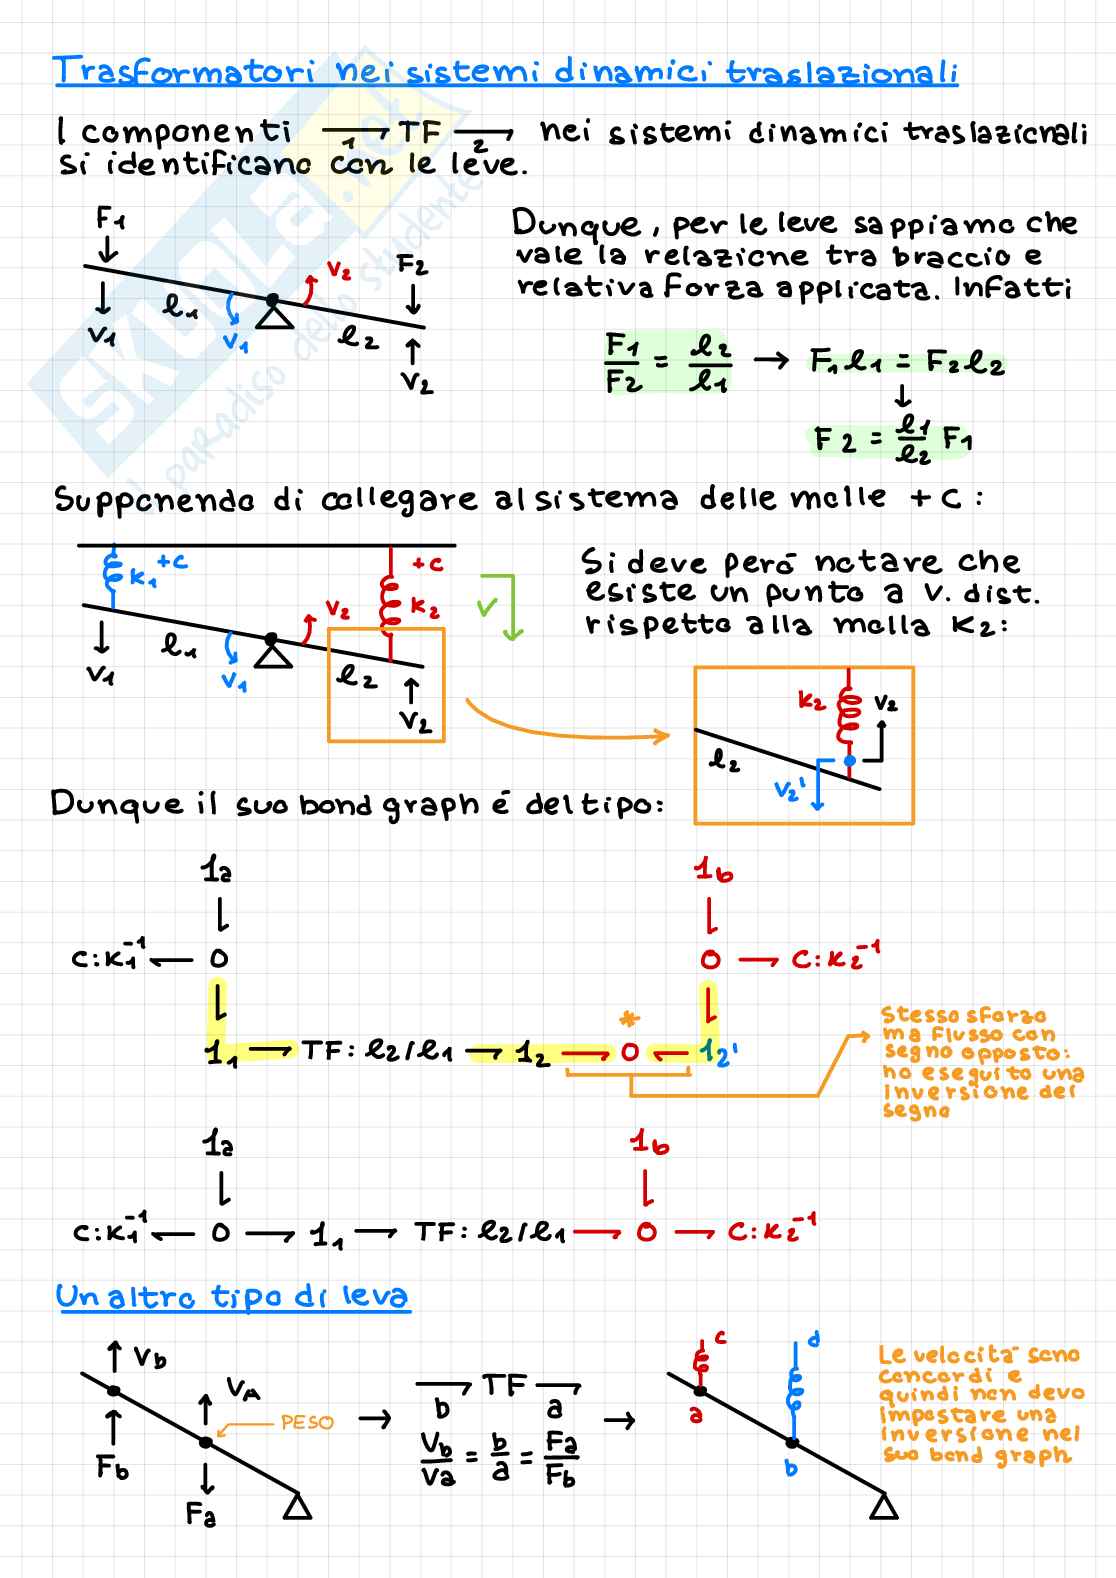 Trasformatori nei sistemi dinamici traslazionali
I componenti 1 TF 2 nei sistemi dinamici traslazionali
si identificano con le leve.
F1
v1
l1
v1
v2
F2
l2
v2
Dunque, per le leve sappiamo che
vale la relazione tra braccio e
relativa forza applicata. Infatti
F1/F2 = l2/l1 → F1 l1 = F2 l2
↓
F2 = l1/l2 F1
Supponendo di collegare al sistema delle molle + C:
K1 +C
+C
K2
v1
l1
v1
v2
l2
v2
V
Si deve però notare che
esiste un punto a V. dist.
rispetto alla molla K2:
K2
v2
l2
v2'
Dunque il suo bond graph è del tipo:
1a
1b
C:K1⁻¹ ← 0
0 → C:K2⁻¹
*
1₁ → TF: l2/l1 → 1₂ → 0 ← 1₂'
Stesso sforzo
ma flusso con
segno opposto:
ho eseguito una
inversione del
segno
1a
1b
C:K1⁻¹ ← 0 → 1₁ → TF: l2/l1 → 0 → C:K2⁻¹
Un altro tipo di leva
Vb
VA
PESO
Fb
Fa
→ TF →
b a
Vb/Va = b/a = Fa/Fb
c
d
a
b
Le velocità sono
concordi e
quindi non devo
impostare una
inversione nel
suo bond graph
SKUOLA.net
il paradiso dello studente